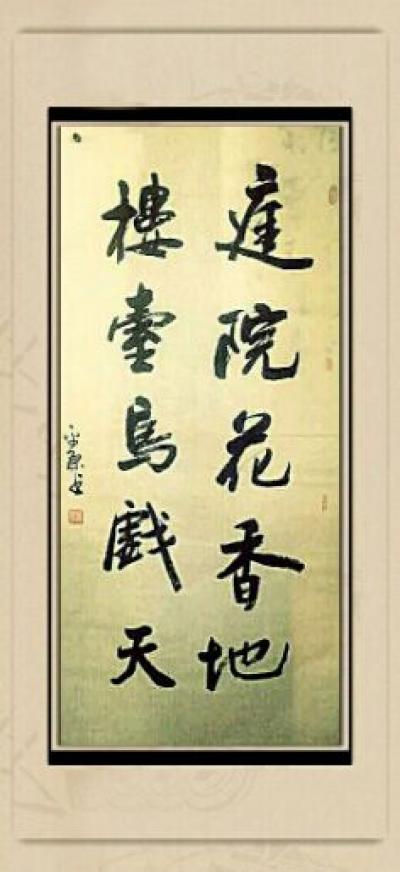 庭院花香地
樓臺鳥戲天